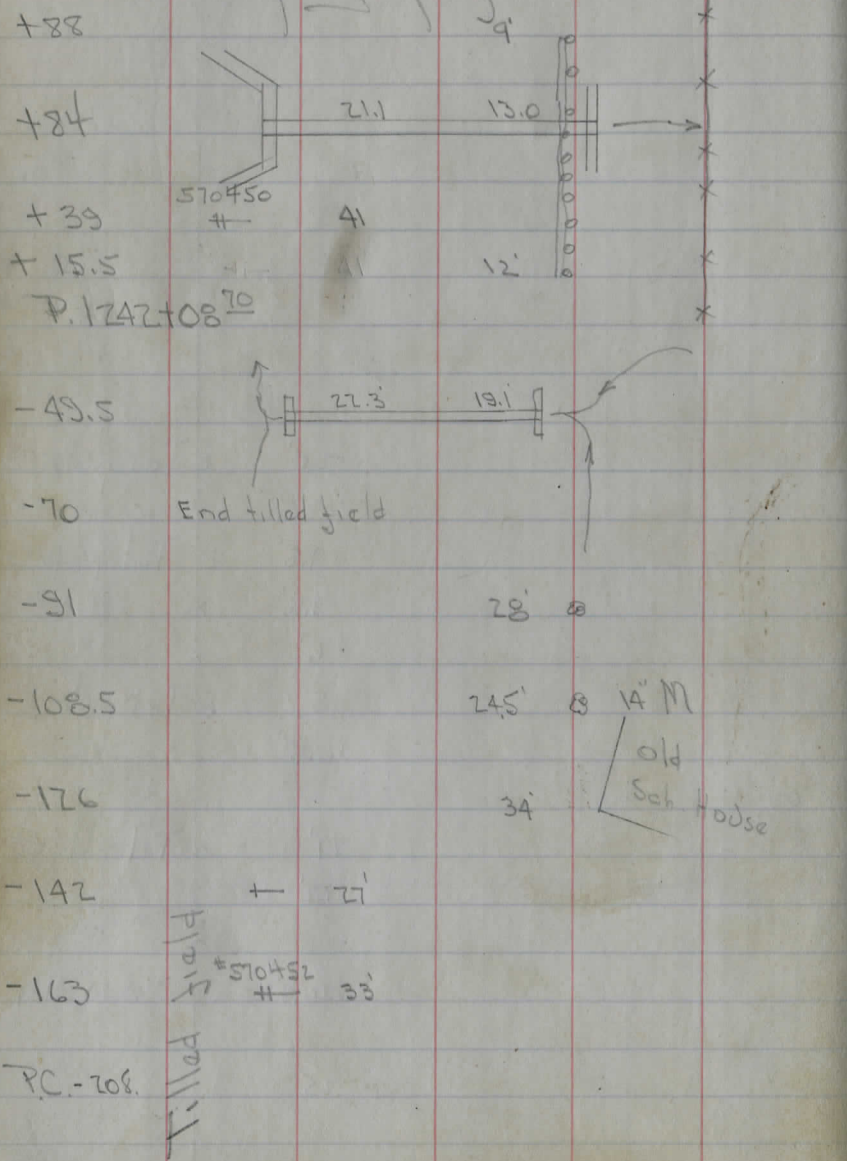 +88 9'
+84 21.1 13.0
570450
+39 41
+15.5 12'
P. 1242+08 70
-49.5 22.3' 19.1'
-70 End tilled field
-91 28'
-108.5 24.5' 14" M
Old
-126 34' Sch. House
-142 27'
#570452
-163 33'
P.C. -208.
Tilled field